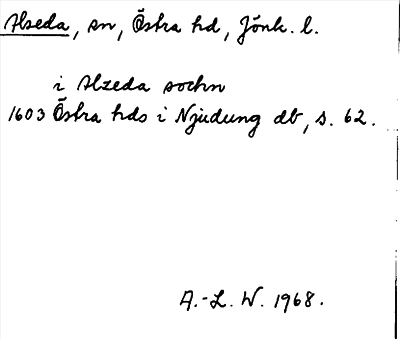 Alseda, sn, Östra hd, Jönk. l.
i Alzeda sochn
1603 Östra hds i Njudung db, s. 62.
A.-L. W. 1968.